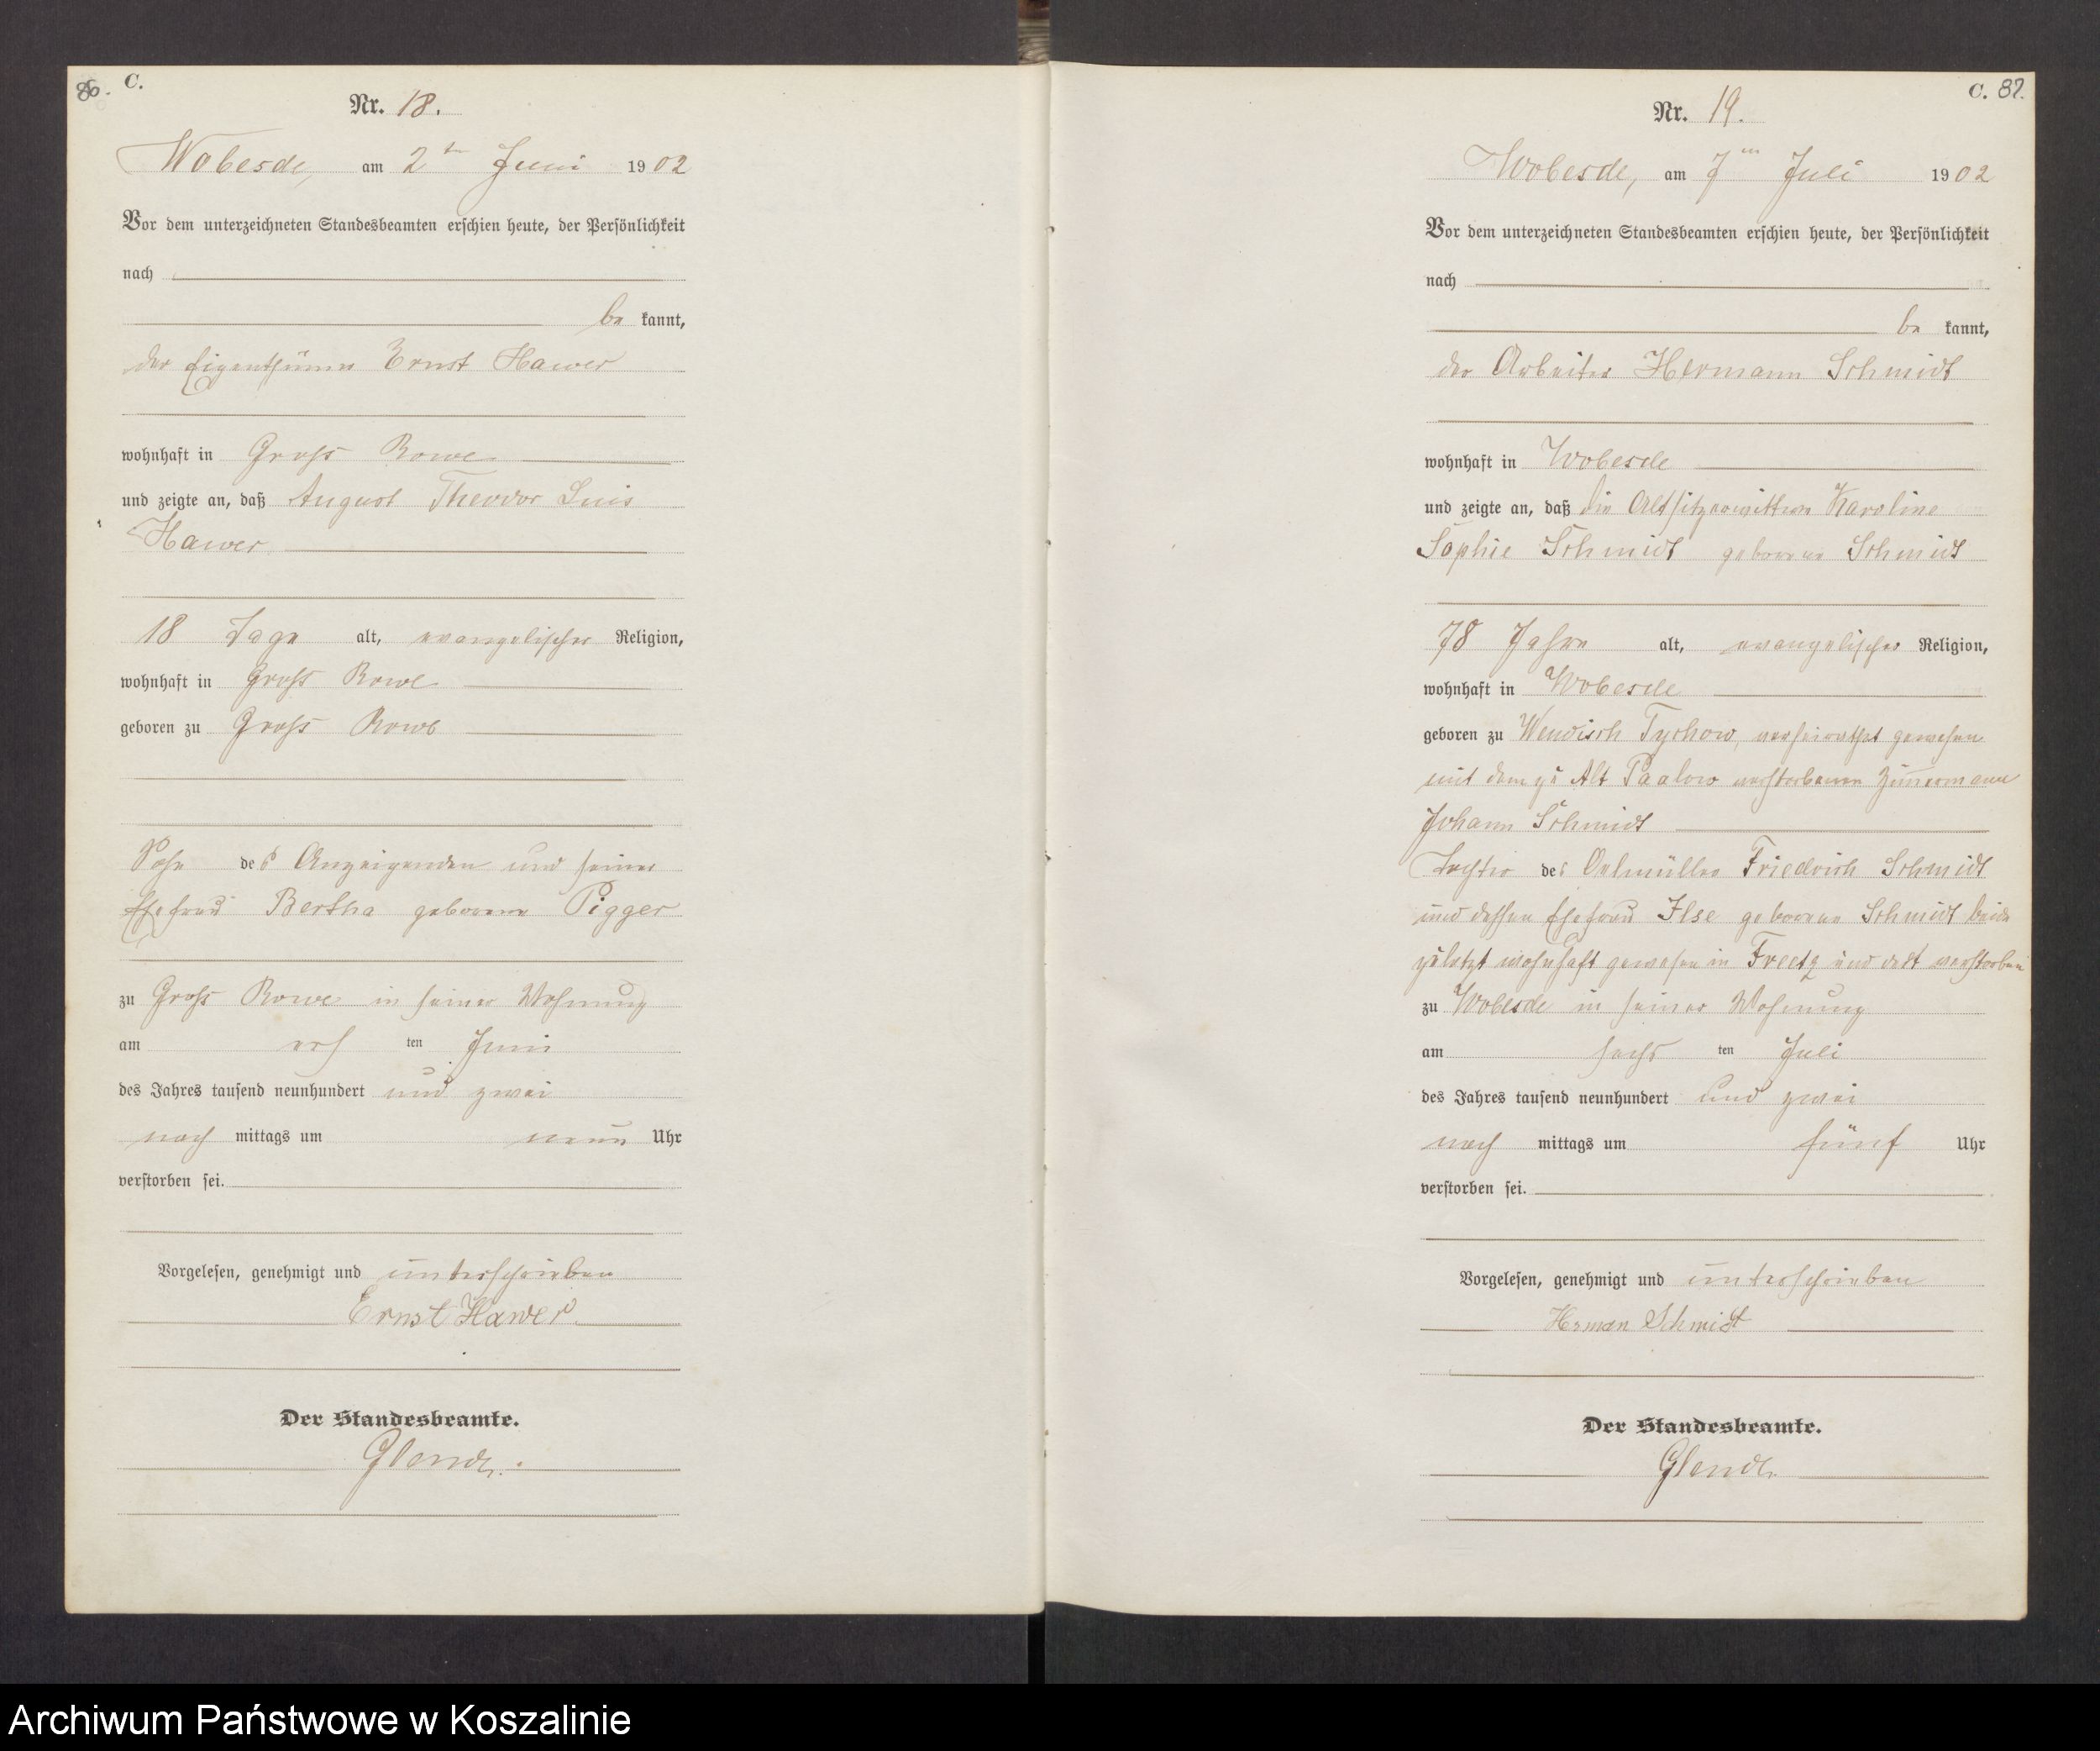 86. C.
Nr. 18.
Wobesde, am 2ten Juni 1902
Vor dem unterzeichneten Standesbeamten erschien heute, der Persönlichkeit
nach
be kannt,
der Eigenthümer Ernst Hawer
wohnhaft in Gross Rowe
und zeigte an, daß August Theodor Luis
Hawer
18 Tage alt, evangelischer Religion,
wohnhaft in Gross Rowe
geboren zu Gross Rowe
Sohn des Anzeigenden und seiner
Ehefrau Bertha geborene Pigger
zu Gross Rowe in seiner Wohnung
am ersten Juni
des Jahres tausend neunhundert und zwei
nach mittags um neun Uhr
verstorben sei.
Vorgelesen, genehmigt und unterschrieben
Ernst Hawer
Der Standesbeamte.
C. 87.
Nr. 19.
Wobesde, am 7ten Juli 1902
Vor dem unterzeichneten Standesbeamten erschien heute, der Persönlichkeit
nach
be kannt,
der Arbeiter Hermann Schmidt
wohnhaft in Wobesde
und zeigte an, daß die Altsitzerwittwe Karoline
Sophie Schmidt geborene Schmidt
78 Jahre alt, evangelischer Religion,
wohnhaft in Wobesde
geboren zu Wendisch Tychow, verheirathet gewesen
mit dem zu Alt Paalow verstorbenen Zimmermann
Johann Schmidt
Tochter des Oelmüller Friedrich Schmidt
und dessen Ehefrau Ilse geborene Schmidt beide
zuletzt wohnhaft gewesen in Freetz und dort verstorben
zu Wobesde in seiner Wohnung
am sechsten Juli
des Jahres tausend neunhundert und zwei
nach mittags um fünf Uhr
verstorben sei.
Vorgelesen, genehmigt und unterschrieben
Herman Schmidt
Der Standesbeamte.
Archiwum Państwowe w Koszalinie